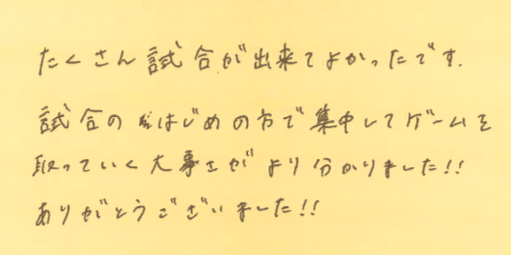 たくさん試合が出来てよかったです.
試合のはじめの方で集中してゲームを
取っていく大事さがより分かりました!!
ありがとうございました!!